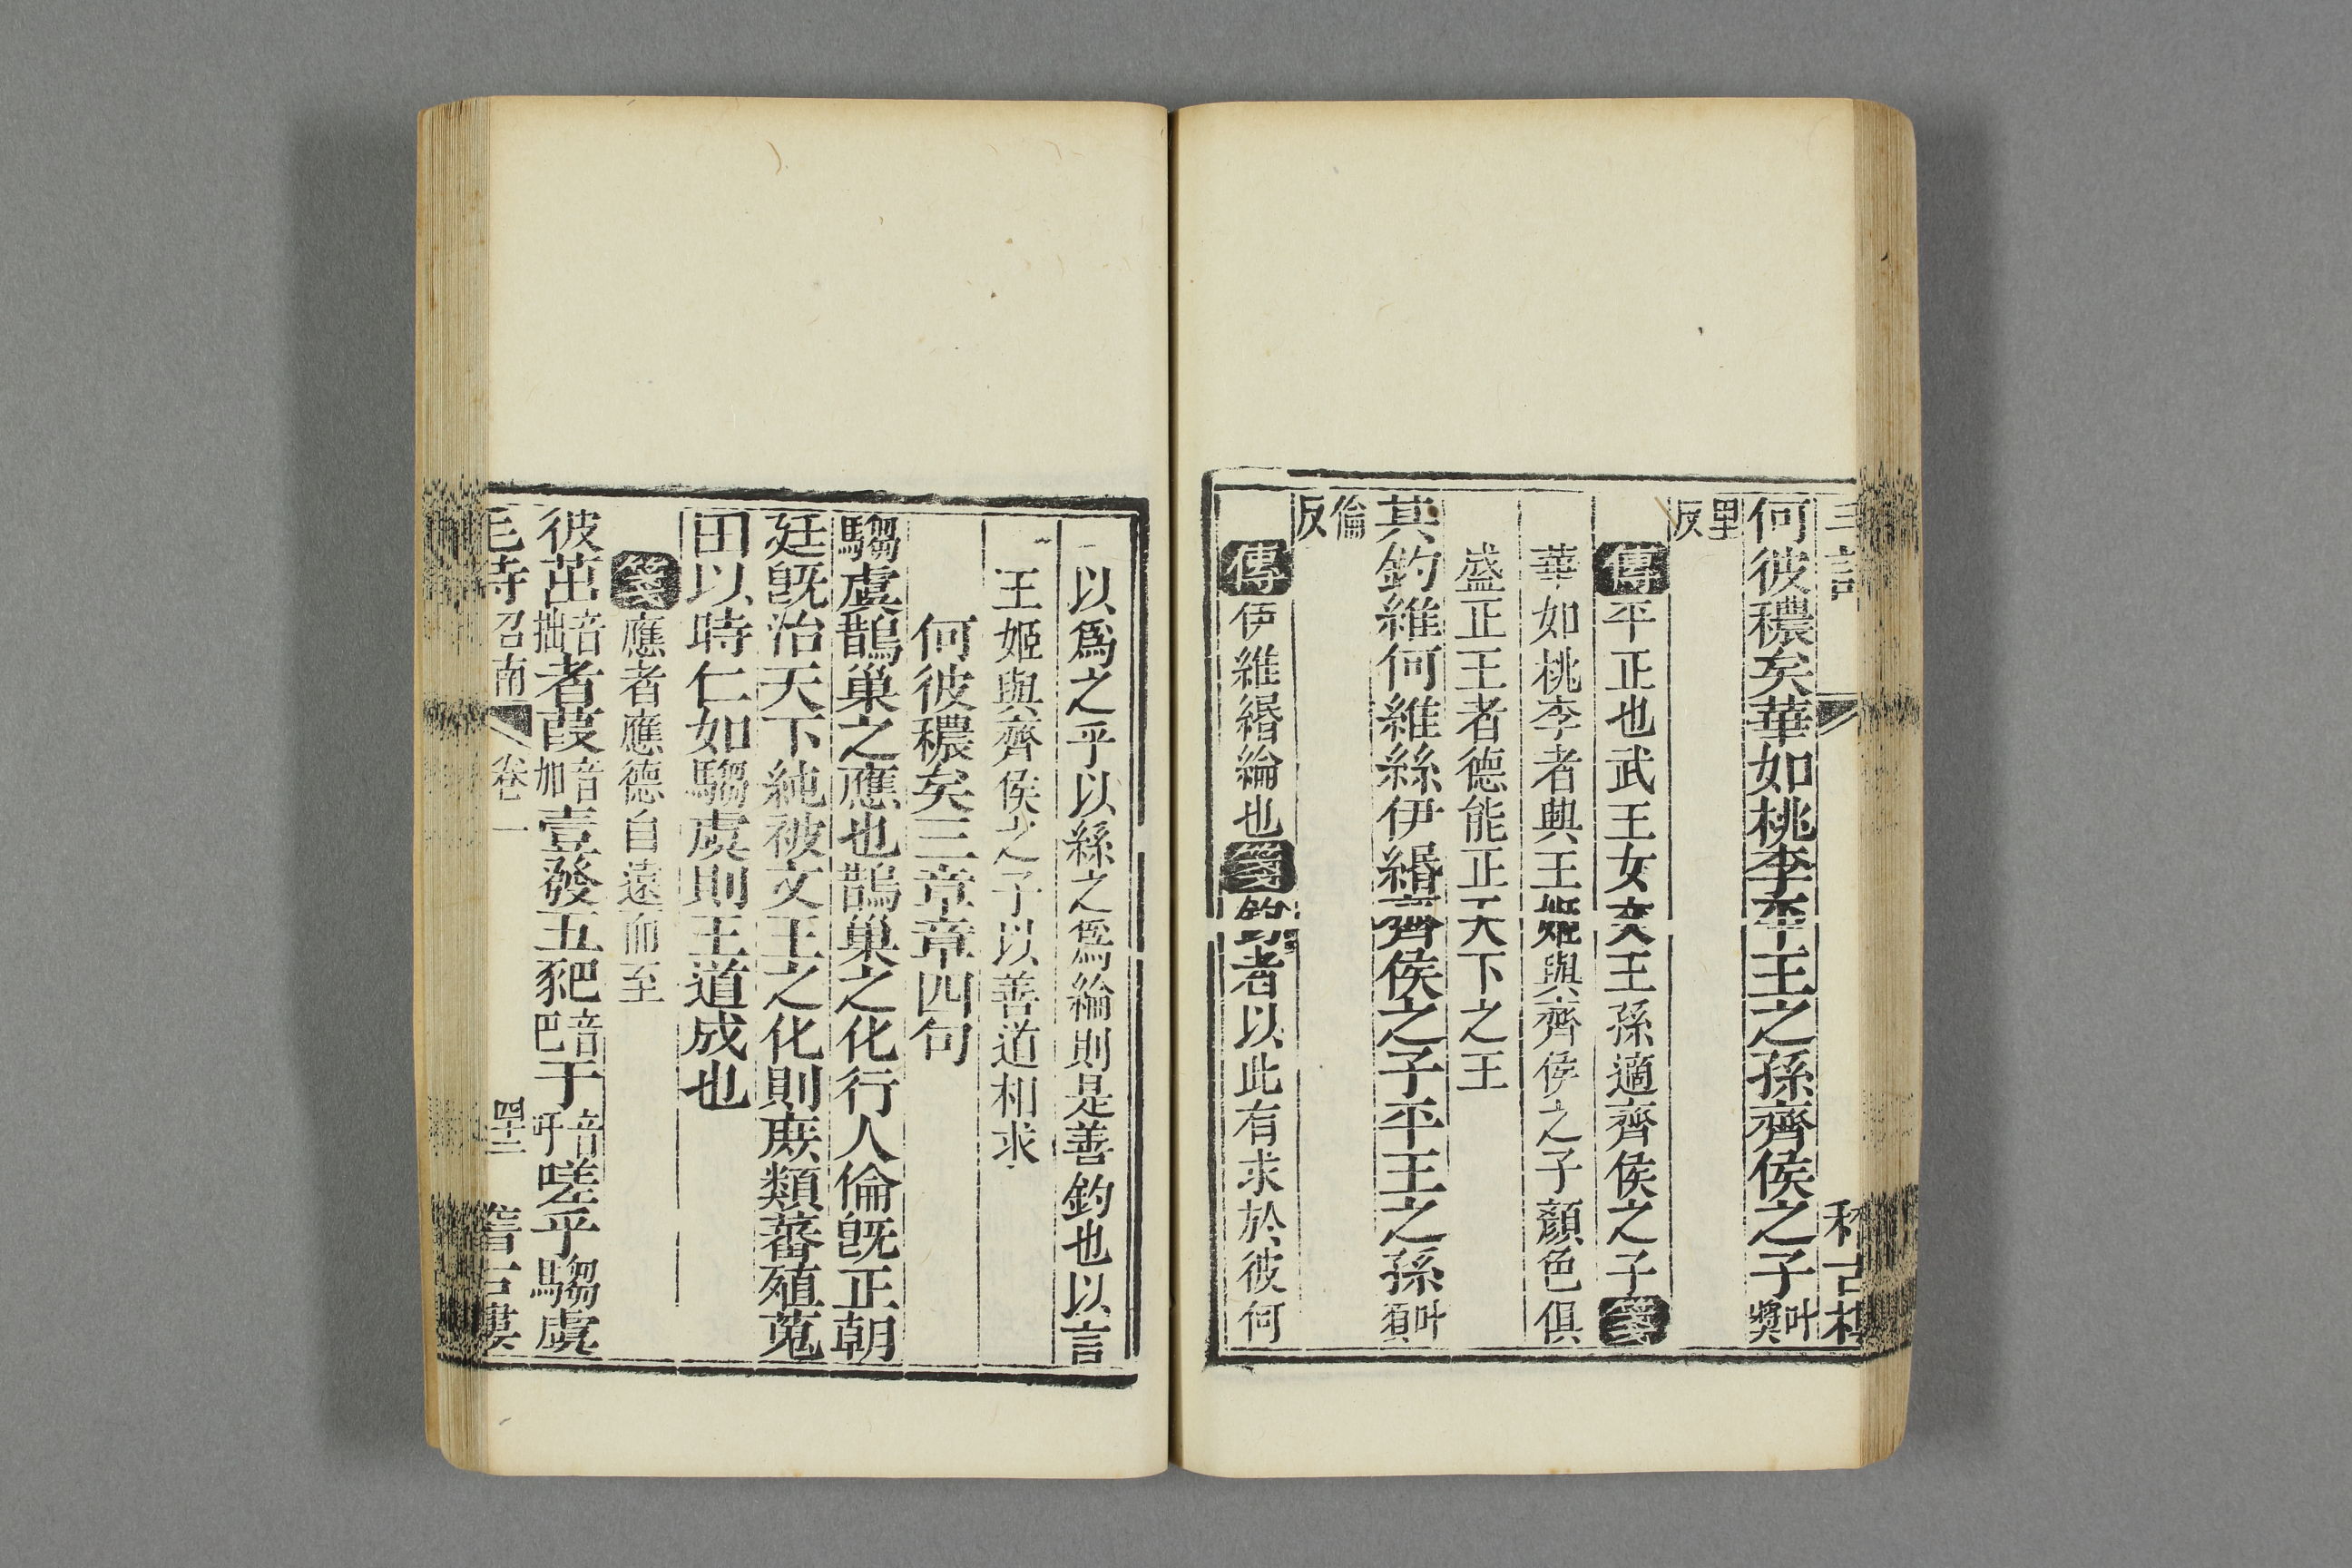 何彼穠矣華如桃李平王之孫齊侯之子叶奬
里反
傳平正也武王女文王孫適齊侯之子箋
華如桃李者興王姬與齊侯之子顏色俱
盛正王者德能正天下之王
其釣維何維絲伊緡齊侯之子平王之孫叶須
倫反
傳伊維緡綸也箋釣者以此有求於彼何
以爲之乎以絲之爲綸則是善釣也以言
王姬與齊侯之子以善道相求
何彼穠矣三章章四句
騶虞鵲巢之應也鵲巢之化行人倫旣正朝
廷旣治天下純被文王之化則庶類蕃殖蒐
田以時仁如騶虞則王道成也
箋應者應德自遠而至
彼茁音拙者葭音加壹發五豝音巴于音吁嗟乎騶虞
毛詩召南 卷一